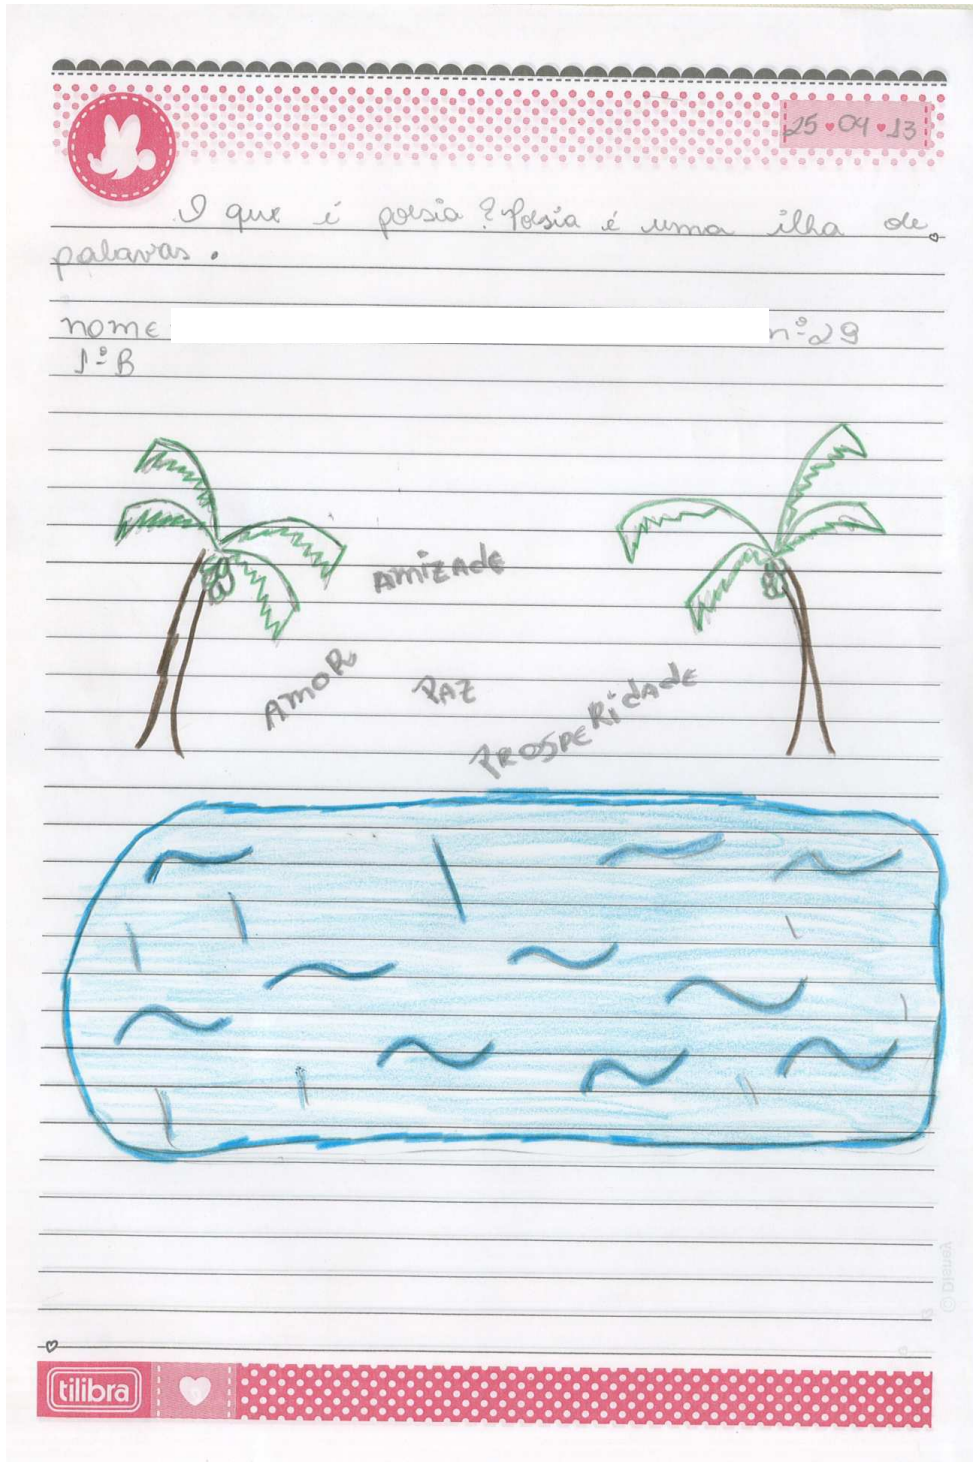 25 04 13
O que é poesia? Poesia é uma ilha de
palavas.
nome nº 29
1º B
AmizAde
AmOR
PAZ
PROSPERidAdE
© Disney
tilibra